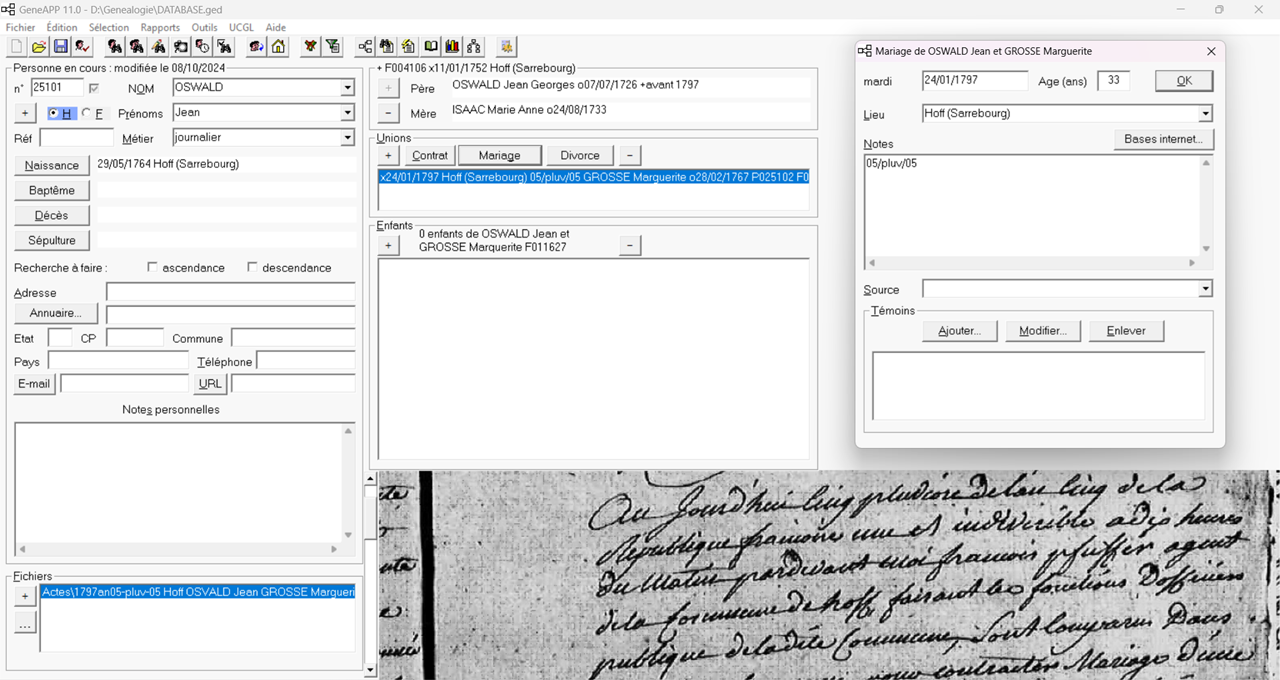 GeneAPP 11.0 - D:\Genealogie\DATABASE.ged
Fichier Édition Sélection Rapports Outils UCGL Aide
Personne en cours : modifiée le 08/10/2024
n° 25101 NOM OSWALD
+ H F Prénoms Jean
Réf Métier journalier
Naissance 29/05/1764 Hoff (Sarrebourg)
Baptême
Décès
Sépulture
Recherche à faire : ascendance descendance
Adresse
Annuaire...
Etat CP Commune
Pays Téléphone
E-mail URL
Notes personnelles
Fichiers
+ Actes\1797an05-pluv-05 Hoff OSVALD Jean GROSSE Margueri
...
+ F004106 x11/01/1752 Hoff (Sarrebourg)
+ Père OSWALD Jean Georges o07/07/1726 +avant 1797
- Mère ISAAC Marie Anne o24/08/1733
Unions
+ Contrat Mariage Divorce -
x24/01/1797 Hoff (Sarrebourg) 05/pluv/05 GROSSE Marguerite o28/02/1767 P025102 F0
Enfants
+ 0 enfants de OSWALD Jean et -
GROSSE Marguerite F011627
Mariage de OSWALD Jean et GROSSE Marguerite
mardi 24/01/1797 Age (ans) 33 OK
Lieu Hoff (Sarrebourg)
Notes Bases internet...
05/pluv/05
Source
Témoins
Ajouter... Modifier... Enlever
Au Jourd'hui Cinq pluviose de lan Cinq de la
Republique francoise une et indivisible a dix heures
du Matin pardevant moi francois pfuffer agent
de la Commune de hoff faisant les fonctions D'officier
publique de ladite Commune, Sont Comparus Dans
pour contracter Mariage D'une